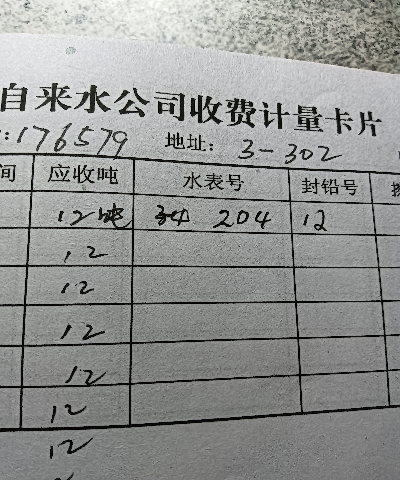 自来水公司收费计量卡片
:176579 地址: 3-302
间 应收吨 水表号 封铅号
12吨 34 204 12
12
12
12
12
12
12